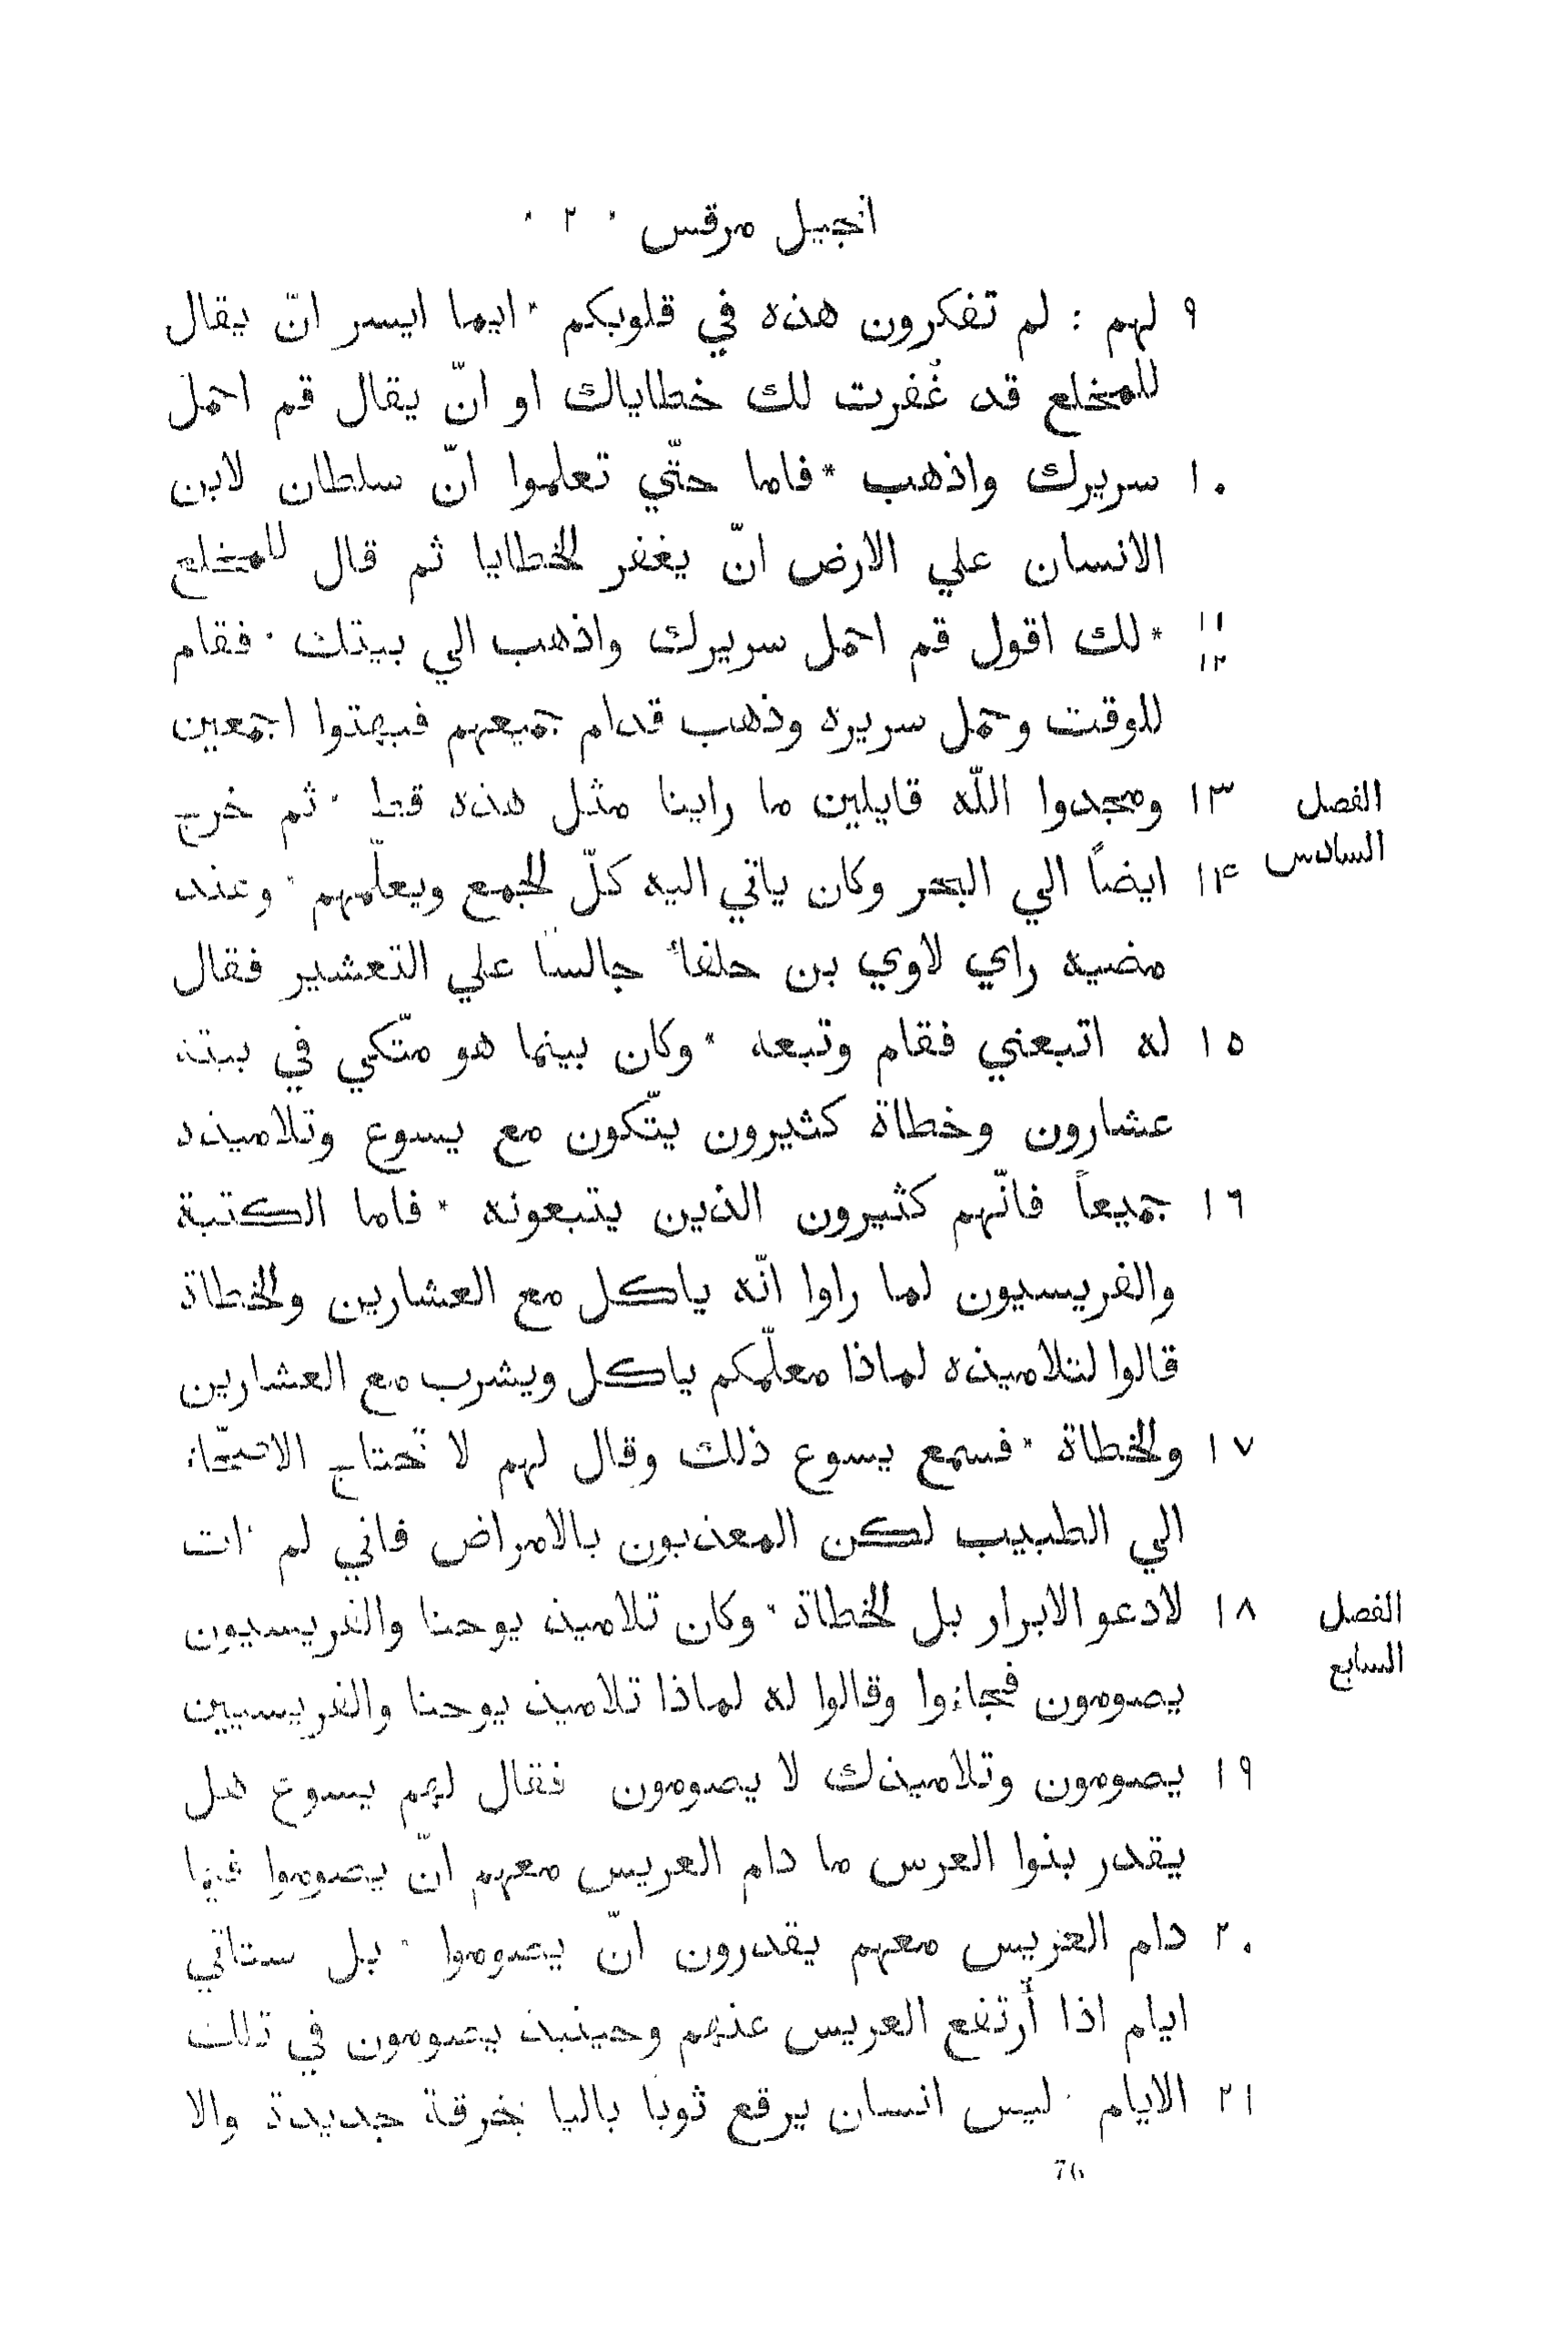 انجيل مرقس * ٢ *
٩ لهم : لم تفكرون هذه في قلوبكم * ايما ايسر انّ يقال
للمخلع قد غُفرت لك خطاياك او انّ يقال قم احمل
١٠ سريرك واذهب * فاما حتّي تعلموا انّ سلطان لابن
الانسان علي الارض انّ يغفر الخطايا ثم قال للمخلع
١١ * لك اقول قم احمل سريرك واذهب الي بيتك * فقام
١٢
للوقت وحمل سريره وذهب قدام جميعهم فبهتوا اجمعين
الفصل ١٣ ومجدوا اللّه قايلين ما راينا مثل هذه قط * ثم خرج
السادس ١٤ ايضاً الي البحر وكان ياتي اليه كلّ الجمع ويعلّمهم * وعند
مضيه راي لاوي بن حلفاً جالسًا علي التعشير فقال
١٥ له اتبعني فقام وتبعه * وكان بينما هو متّكي في بيته
عشارون وخطاة كثيرون يتّكون مع يسوع وتلاميذه
١٦ جميعاً فانّهم كثيرون الذين يتبعونه * فاما الكتبة
والفريسيون لما راوا انّه ياكل مع العشارين والخطاة
قالوا لتلاميذه لماذا معلّمكم ياكل ويشرب مع العشارين
١٧ والخطاة * فسمع يسوع ذلك وقال لهم لا تحتاج الاصحّاء
الي الطبيب لكن المعذبون بالامراض فاني لم ات
الفصل ١٨ لادعو الابرار بل الخطاة * وكان تلاميذ يوحنا والفريسيون
السابع
يصومون فجاءوا وقالوا له لماذا تلاميذ يوحنا والفريسيين
١٩ يصومون وتلاميذك لا يصومون فقال لهم يسوع هل
يقدر بنوا العرس ما دام العريس معهم انّ يصوموا فيما
٢٠ دام العريس معهم يقدرون انّ يصوموا * بل ستاتي
ايام اذا أرتفع العريس عنهم وحينيذ يصومون في تلك
٢١ الايام * ليس انسان يرقع ثوبا باليا بخرقة جديدة والا
76